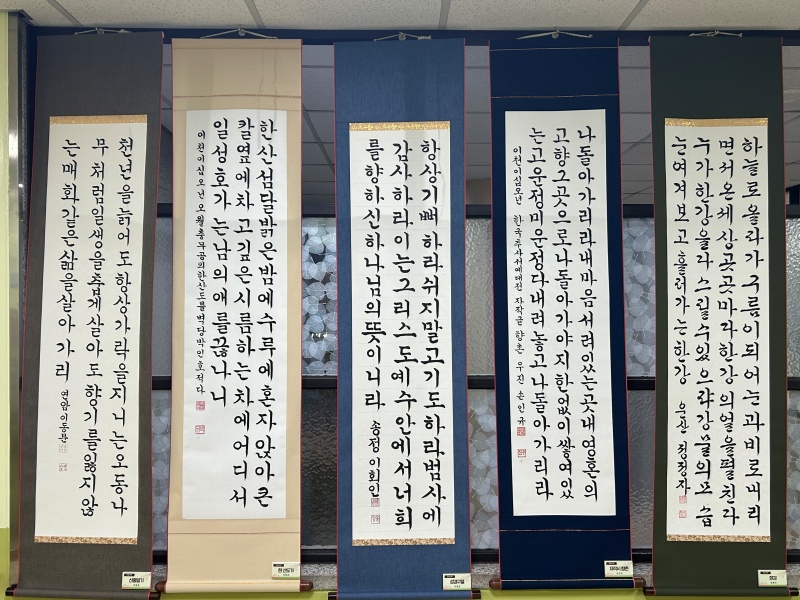 천년을늙어도항상가락을지니는오동나
무처럼일생을춥게살아도향기를잃지않
는매화같은삶을살아가리 연암이동문
한산섬달밝은밤에수루에혼자앉아큰
칼옆에차고깊은시름하는차에어디서
일성호가는남의애를끊나니
이천이십오년오월충무공의한산도를벽당박인호적다
항상기뻐하라쉬지말고기도하라범사에
감사하라이는그리스도예수안에서너희
를향하신하나님의뜻이니라 송정이회인
나돌아가리라내마음서려있는곳내영혼의
고향그곳으로나돌아가야지한없이쌓여있
는고운정미운정다내려놓고나돌아가리라
이천이십오년 한국추사서예대전 자작글향촌 우진 손인규
하늘로올라가구름이되어눈과비로내리
면서온세상곳곳마다한강의얼을펼친다
누가한강을다스릴수있으랴강물의모습
눈여겨보고흘러가는한강 우산
한산도가
성경구절
한강